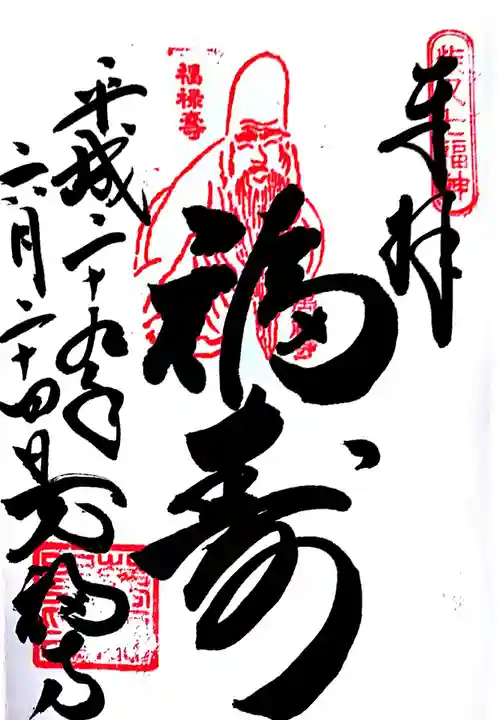 柴又七福神
奉拝
福禄壽
福寿
平成二十九年
六月二十四日 萬福寺